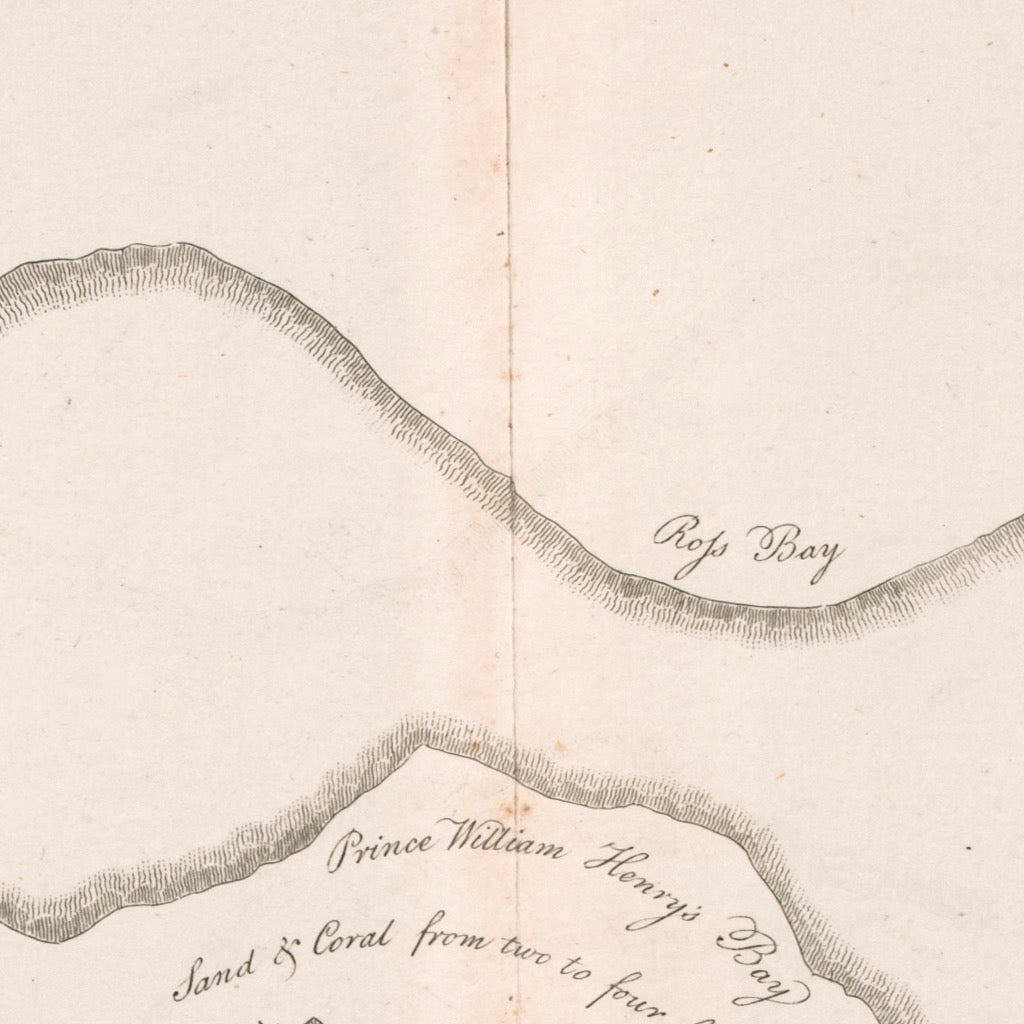 Roſs Bay
Prince William Henry's Bay
Sand & Coral from two to four